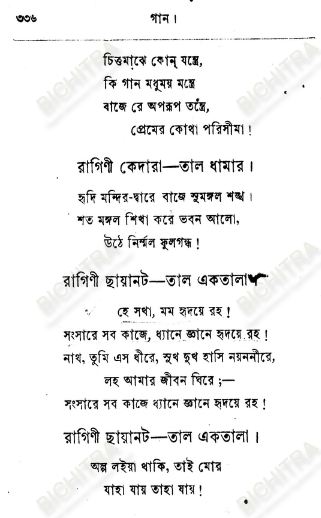 ৩৩৬ গান।
চিত্তমাঝে কোন্ যন্ত্রে,
কি গান মধুময় মন্ত্রে
বাজে রে অপরূপ তন্ত্রে,
প্রেমের কোথা পরিসীমা!
রাগিণী কেদারা—তাল ধামার।
হৃদি মন্দির-দ্বারে বাজে সুমঙ্গল শঙ্খ।
শত মঙ্গল শিখা করে ভবন আলো,
উঠে নির্ম্মল ফুলগন্ধ!
রাগিণী ছায়ানট—তাল একতালা
হে সখা, মম হৃদয়ে রহ!
সংসারে সব কাজে, ধ্যানে জ্ঞানে হৃদয়ে রহ!
নাথ, তুমি এস ধীরে, সুখ দুখ হাসি নয়ননীরে,
লহ আমার জীবন ঘিরে;—
সংসারে সব কাজে ধ্যানে জ্ঞানে হৃদয়ে রহ!
রাগিণী ছায়ানট—তাল একতালা।
অল্প লইয়া থাকি, তাই মোর
যাহা যায় তাহা যায়!
BICHITRA
BICHITRA
BICHITRA
BICHITRA
BICHITRA
BICHITRA